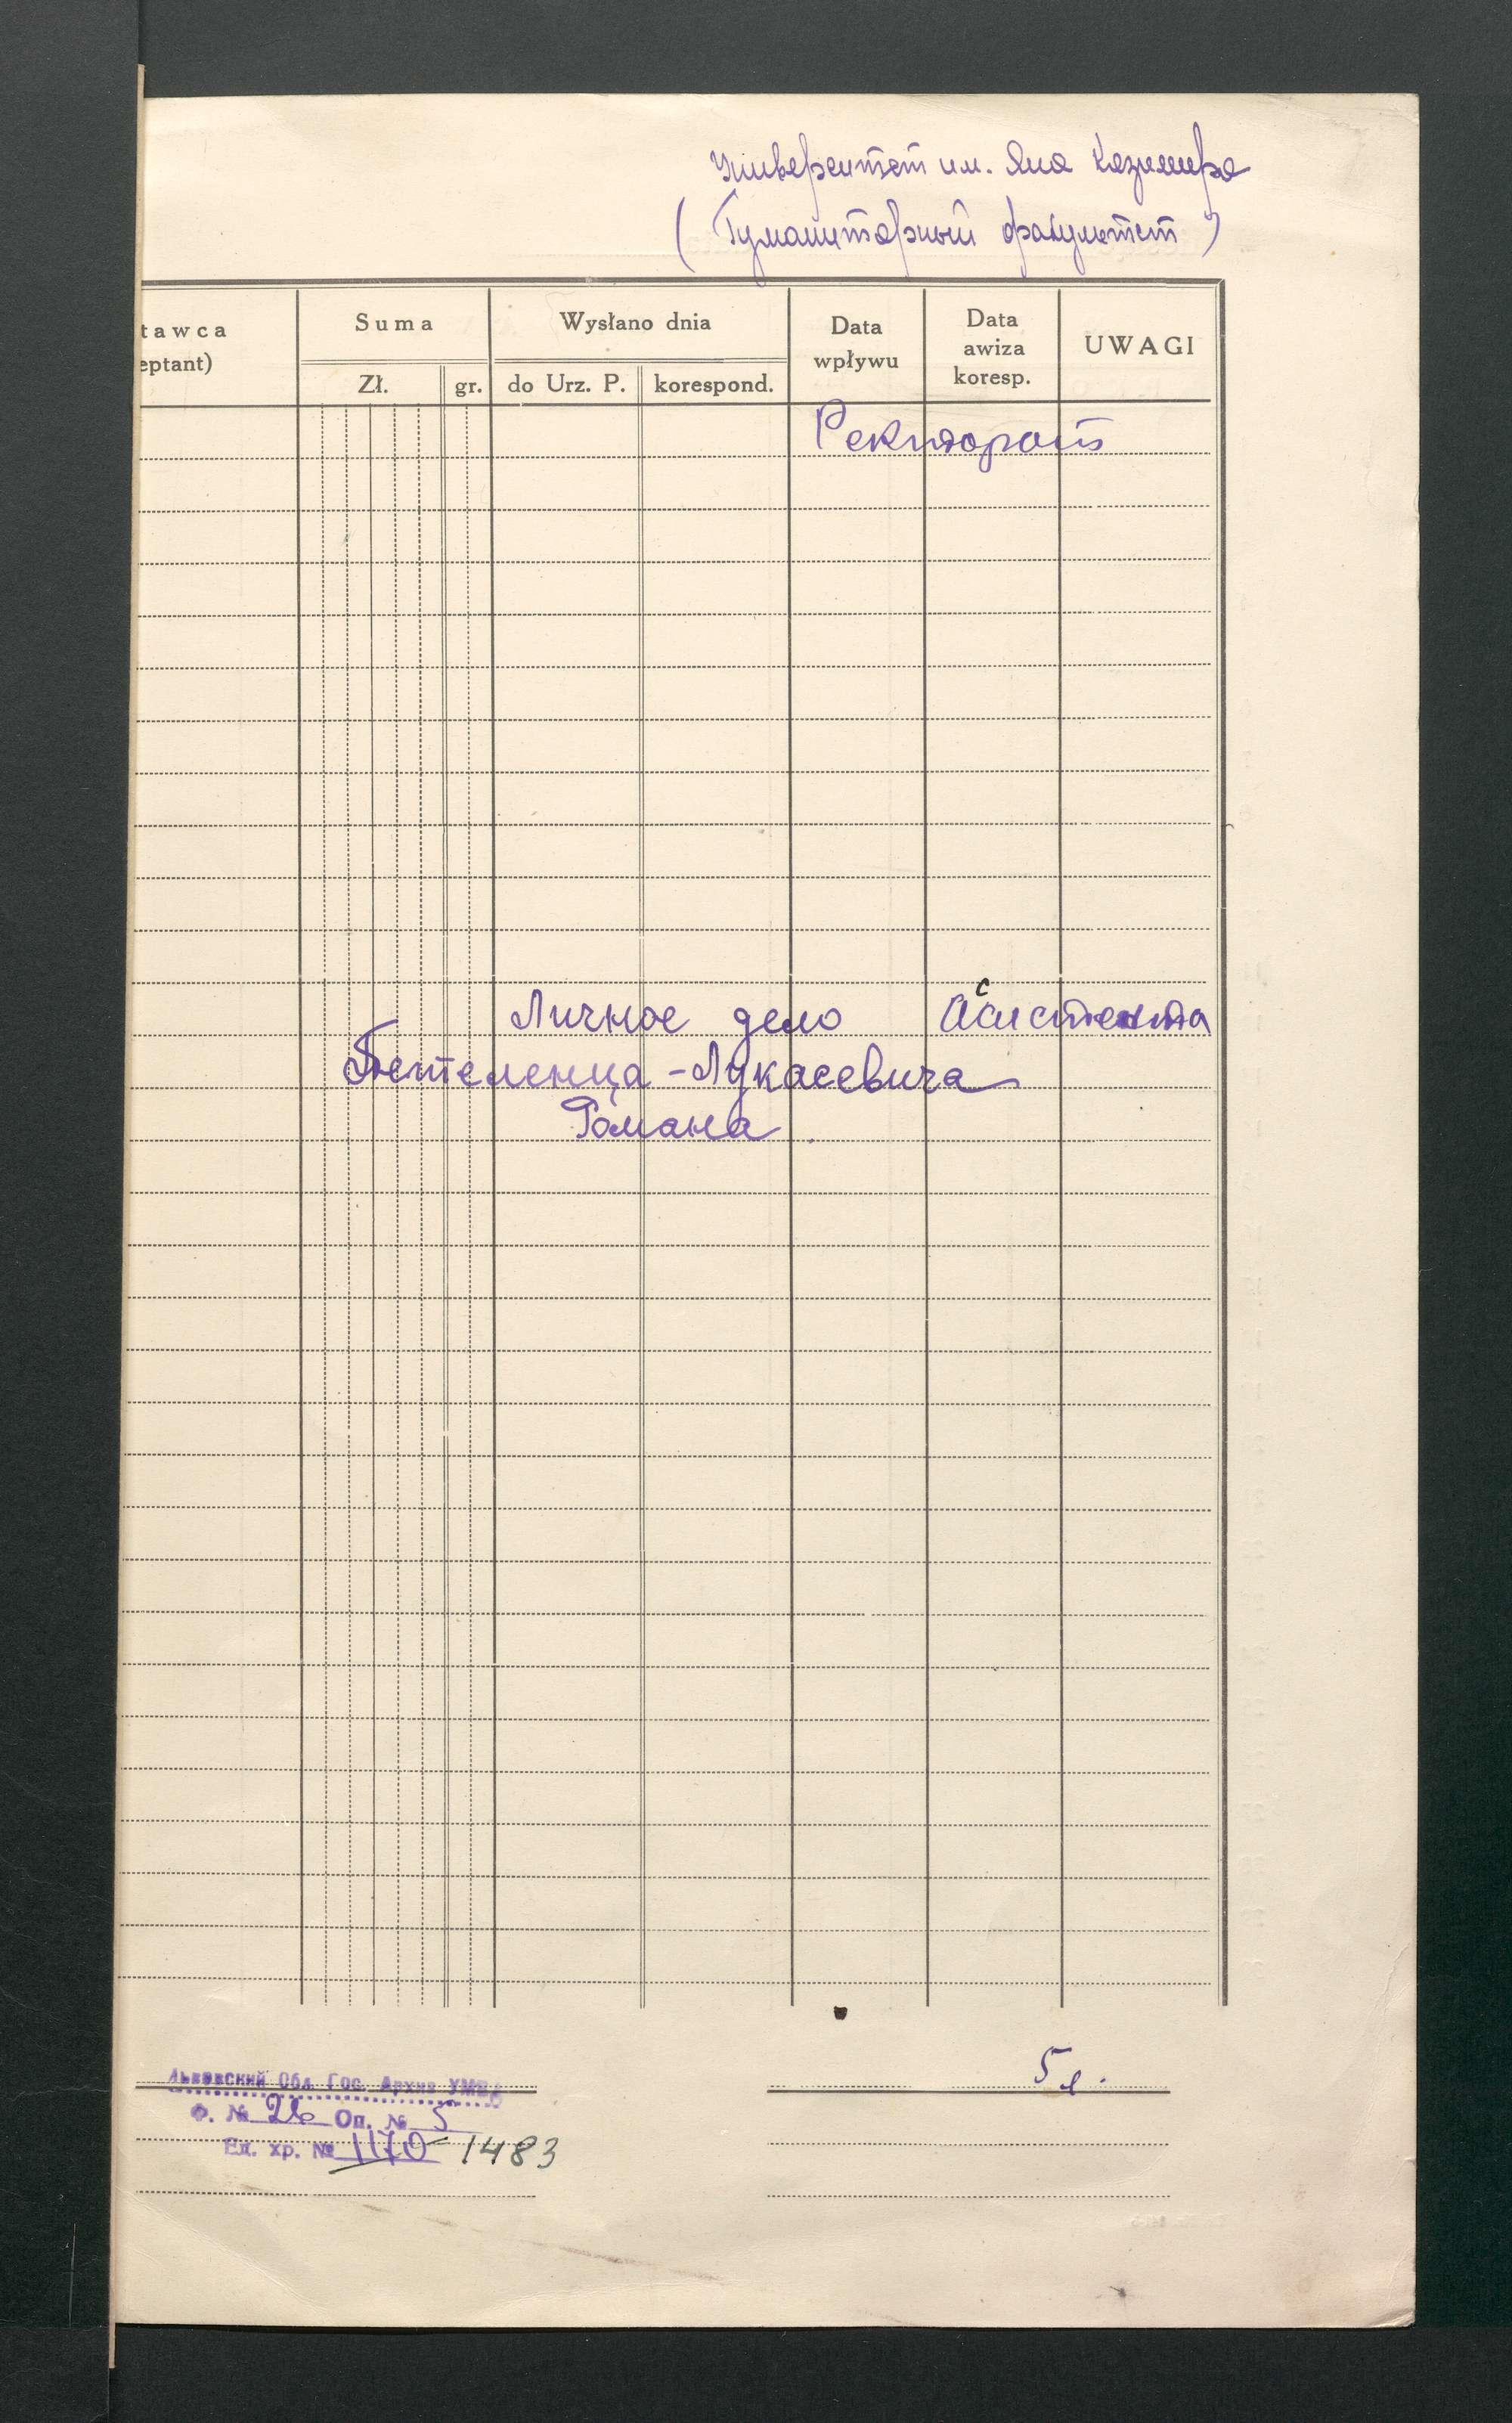 Университет им. Яна Казимира
(Гуманитарный факультет)
tawca
eptant)
Suma
Zł. gr.
Wysłano dnia
do Urz. P. korespond.
Data
wpływu
Data
awiza
koresp.
UWAGI
Ректорат
Личное дело Ассистента
Бетеленца-Лукасевича
Романа
5 л.
Львовский Обл. Гос. Архив УМВД
Ф. № 26 Оп. № 5
Ед. хр. № 1170 1483